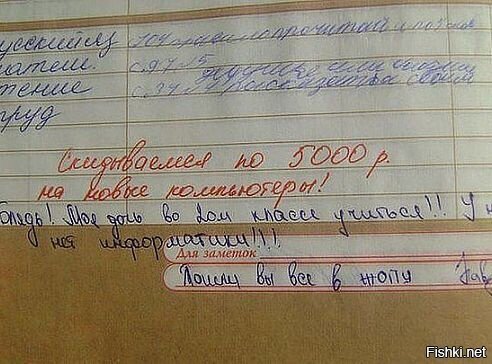 усский яз 104 прочитать
матем. с. 97 5
тение с. 34 рассказать о своей
труд
Скидываемся по 5000 р.
на новые компьютеры!
Блядь! Моя дочь во 2ом классе учиться!! У н
ней информатики!!!
Для заметок
Пошли вы все в жопу
Fishki.net